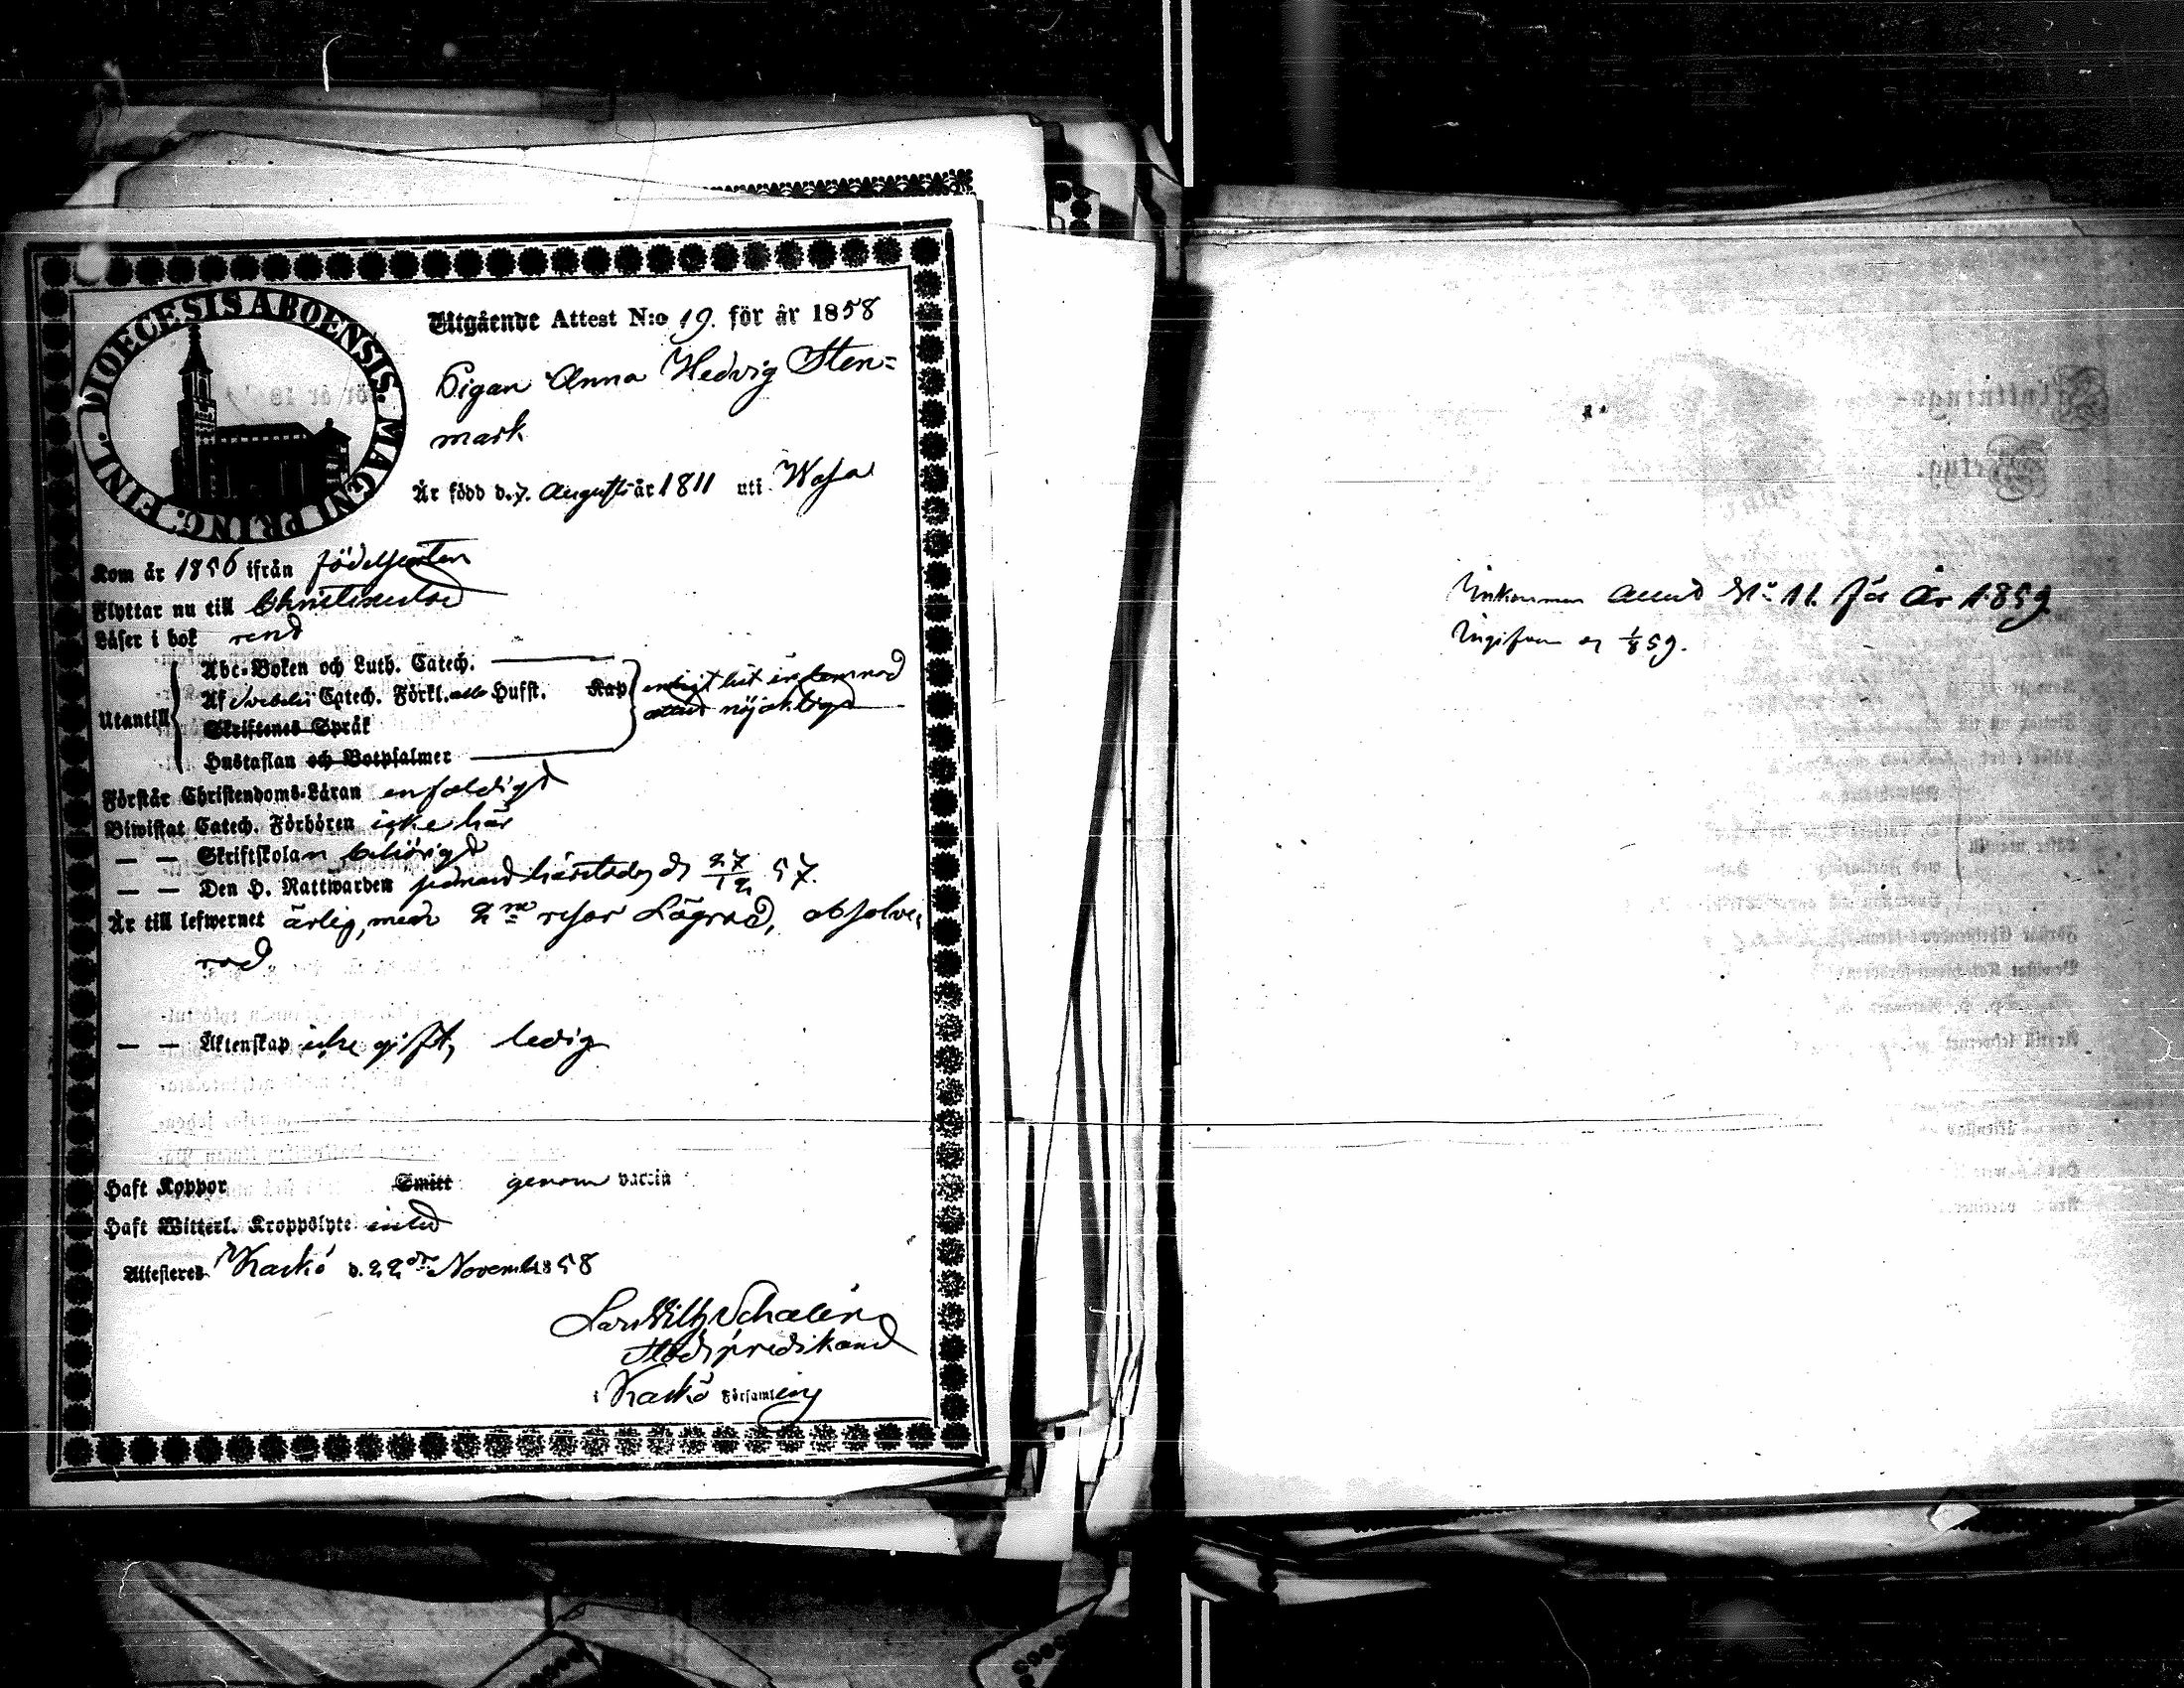 DIOECESIS ABOENSIS. MAGNI PRINC. FINL.
Utgående Attest N:o 19. för år 1858
Pigan Anna Hedvig Sten=
mark
Är född d. 7. Augusti år 1811 uti Wasa
Kom år 1856 ifrån födelseorten
Flyttar nu till Christinestad
Läser i bok rent
Utantill
Abc-Boken och Luth. Catech.
Af Svebelii Catech. Förkl. alla Hufst. Kap enligt hit inlemnad
Skriftenes Språk attest nöjaktigt
Hustaflan och Botpsalmer
Förstår Christendoms-Läran enfaldigt
Biwistat Catech. Förhören icke här
— — Skriftskolan behörigt
— — Den H. Nattwarden härstädes d. 27/12 57.
Är till lefwernet ärlig, men 2ne resor Lägrad, absolve=
rad
— — Äktenskap icke gift, ledig
Haft Koppor Smitt genom vaccin
Haft Witterl. Kroppslyte intet
Attesteras Kaskö d. 22dra Novemb. 1858
Lars Wilh Schalin
Stadspredikant
i Kaskö Församling
Inkommen Attest No 11. för År 1859
1/8 59.